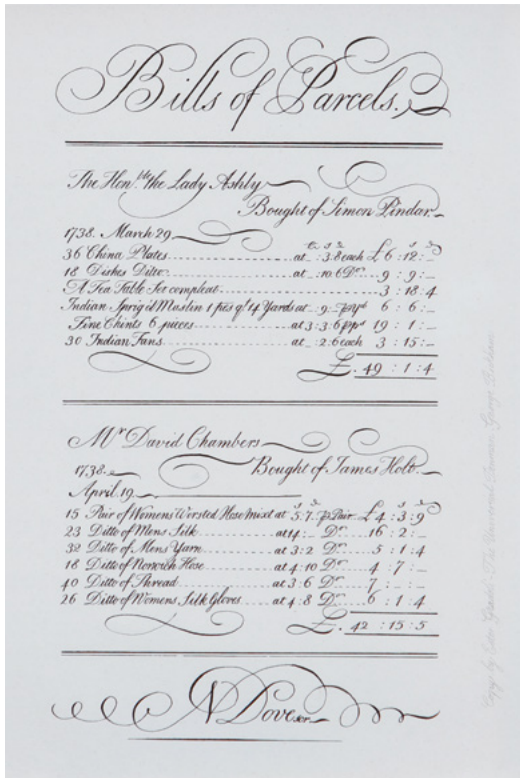 Bills of Parcels.
The Hon.ble the Lady Ashby
Bought of Simon Pindar
1738. March 29
£ s d s d
36 China Plates at _ : 3 : 8 each £ 6 : 12 : _
18 Dishes Ditto at _ : 10 : 6 Do. 9 : 9 : _
A Tea Table Set compleat 3 : 18 : 4
Indian Sprig'd Muslin 1 pies q/14 Yards at _ : 9 : _ p yd 6 : 6 : _
Fine Chints 6 pieces at 3 : 3 : 6 pps 19 : 1 : _
30 Indian Fans at _ : 2 : 6 each 3 : 15 : _
£. 49 : 1 : 4
Mr David Chambers
1738. Bought of James Holt.
April 19.
s d s d
15 Pair of Womens Worsted Hose mixt at 5 : 7 p Pair £ 4 : 3 : 9
23 Ditto of Mens Silk at 14 : _ Do. 16 : 2 : _
32 Ditto of Mens Yarn at 3 : 2 Do. 5 : 1 : 4
18 Ditto of Norwich Hose at 4 : 10 Do. 4 : 7 : _
40 Ditto of Thread at 3 : 6 Do. 7 : _ : _
26 Ditto of Womens Silk Gloves at 4 : 8 Do. 6 : 1 : 4
£. 42 : 15 : 5
N Dove scr
The Universal Penman, George Bickham